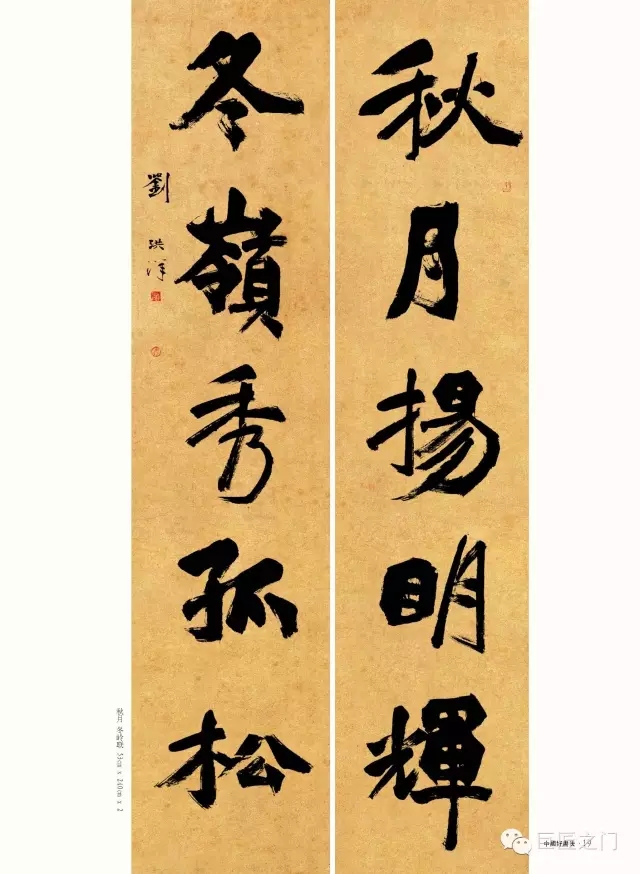 秋月揚明輝
冬嶺秀孤松
劉洪洋
秋月 冬岭联 53cm x 240cm x 2
中國好書法 · 19
巨匠之门